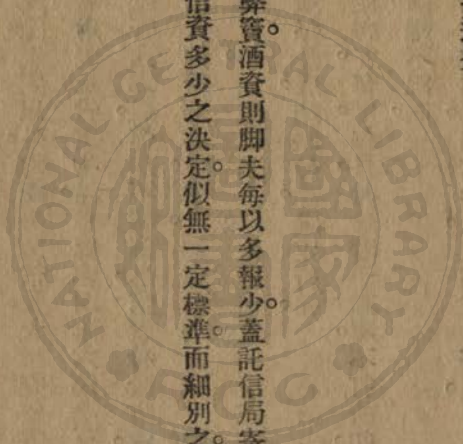 弊竇。酒資則脚夫每以多報少。蓋託信局寄
信資多少之決定。似無一定標準。而細別之。
NATIONAL CENTRAL LIBRARY